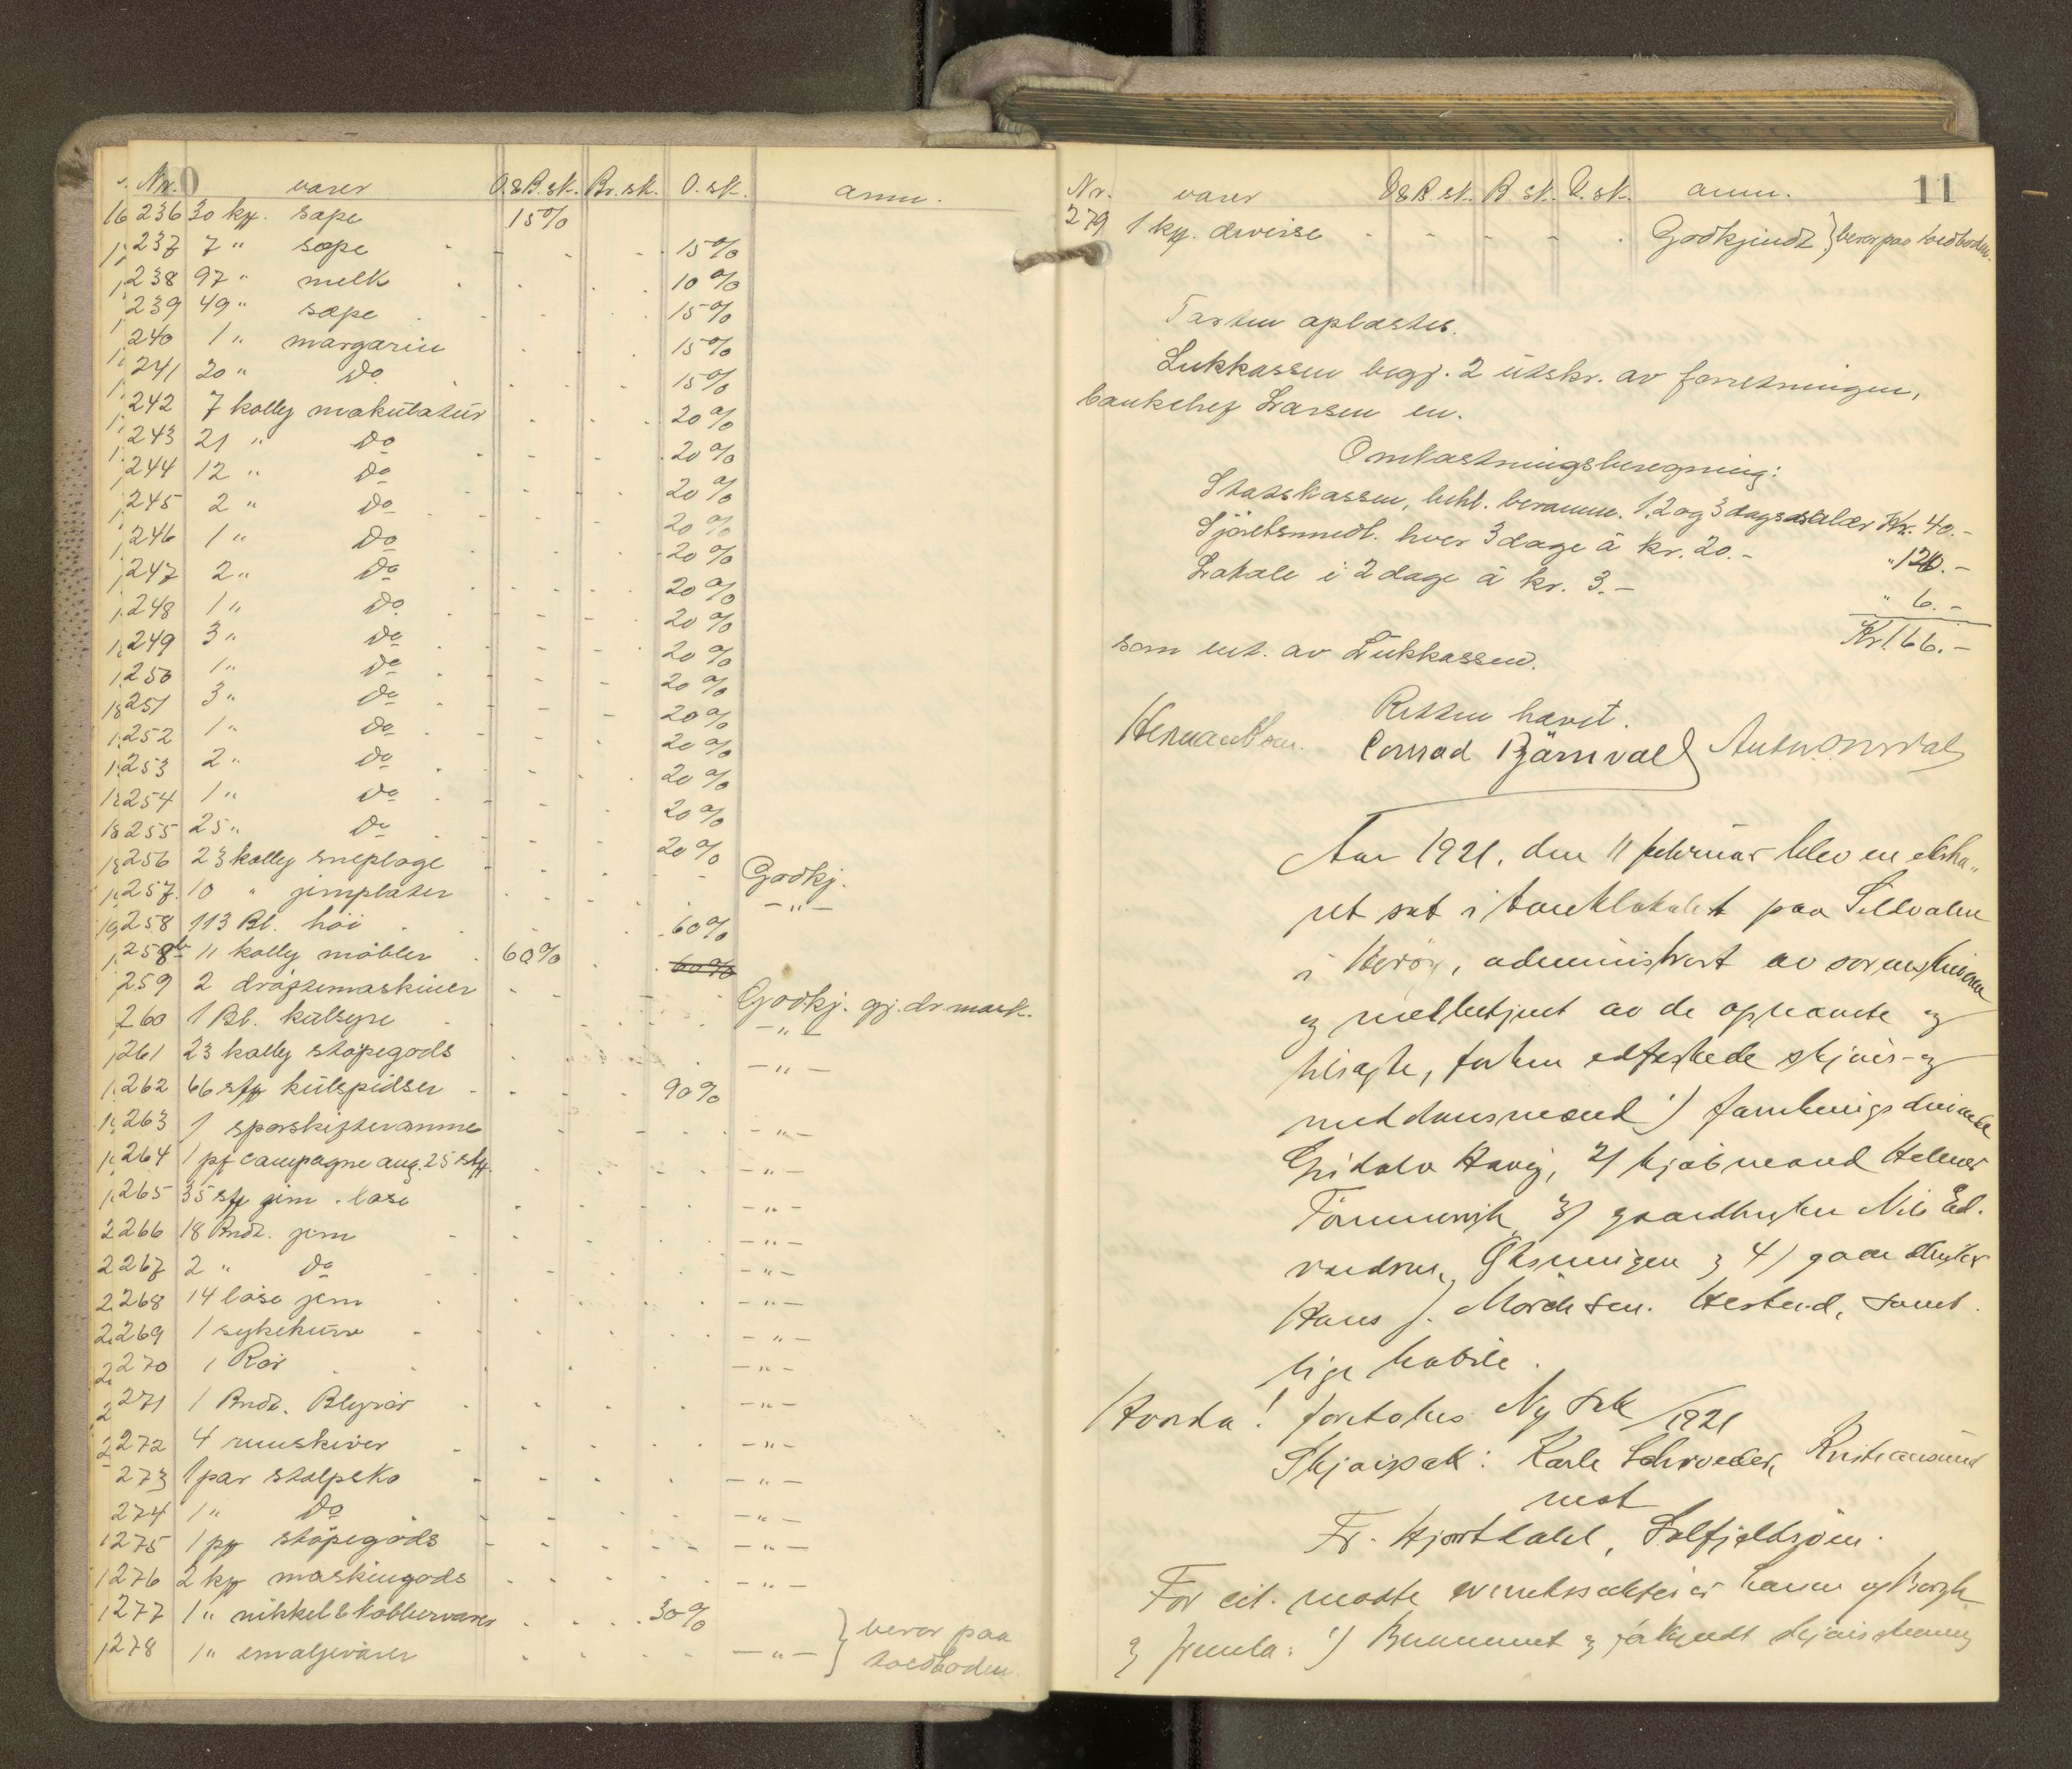 Nr. varer O.&B.sk. Br.sk. O.sk. anm.
236 30 kp. sæpe 15%
237 7 " sæpe 15%
238 97 " melk 10%
239 49 " sæpe 15%
240 1 " margarin 15%
241 20 " Do 15%
242 7 kolly makulatur 20%
243 21 " Do 20%
244 12 " Do 20%
245 2 " Do 20%
246 1 " Do 20%
247 2 " Do 20%
248 1 " Do 20%
249 3 " Do 20%
250 1 " Do 20%
251 3 " Do 20%
252 1 " Do 20%
253 2 " Do 20%
254 1 " Do 20%
255 25 " Do 20%
256 23 kolly sneploge Godkj.
257 10 " jernplater -"-
258 113 Bl. höi 60%
258b 11 kolly möbler 60% 60%
259 2 dröftemaskiner Godkj. gj. dr mask.
260 1 Bl. kulsyre -"-
261 23 kolly stöpegods -"-
262 66 stk kulspidser 90%
263 1 sporskifteramme -"-
264 1 pk campagne ang. 25 stk. -"-
265 35 stk jern . löse -"-
266 18 Bndt. jern -"-
267 2 " Do -"-
268 14 löse jern -"-
269 1 sykekurv -"-
270 1 Rör -"-
271 1 Bndt. Blyrör -"-
272 4 -"-
273 1 par stolpsko -"-
274 1 " Do -"-
275 1 pk stöpegods -"-
276 2 kp maskingods -"-
277 1 " nikkel & kobbervarer 30% } beror paa
278 1 " emaljevarer -"- } toldboden
11
Nr. varer O&B.sk. B.sk. O.sk. anm.
279 1 kp. diverse Godkjendt } beror paa toldboden.
Taxten oplæstes.
Lukkassen begj. 2 utskr. av forretningen,
bankchef Larsen en.
Omkostningsberegning:
Statskassen, behl. beramm. 1, 2 og 3 dags salær Kr. 40.-
Sjöretsmedl. hver 3 dage á kr. 20.- " 120.-
Lokale i 2 dage á kr. 3.- " 6.-
Kr 166.-
som ent. av Lukkassen.
Retten hævet.
Conrad Bjärnvall
Aar 1921, den 11 februar blev en ekstra-
ret sat i banklokalet paa Silvalen
i Herøy, administrert av sorenskriveren
og medbetjent av de opnævnte og
tilsagte, forhen edfæstede skjøns- og
meddomsmænd 1) forretningsdrivende
Havig, 2) kjøbmand Helmer
3) gaardbruker Nils Ed-
vardsen, og 4) gaardbruker
Hans J. samt-
lige habile.
Hvorda! foretokes Ny sak /1921
Skjønssak: Karle Schroeder, Kristiansund
mot
Fr. Hjortdahl, Solfjeldsjøen.
For cit. møtte
og fremla: 1) Berammet og forkyndt skjønsstevning